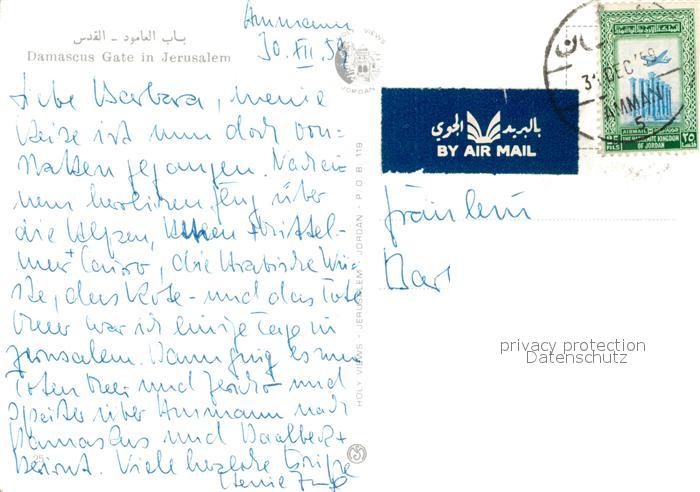 باب العامود - القدس
Damascus Gate in Jerusalem
Ammann
30. XII. 59
Liebe Barbara, meine
Reise ist nun doch von-
statten gegangen. Nach ei-
nem herrlichen Flug über
die Alpen, Mittel-
meer + Cairo, die Arabische Wü-
ste, das Rote- und das Tote
Meer war ich einige Tage in
Jerusalem. Dann ging es zum
Toten Meer und Jericho und
später über Ammann nach
Damaskus und Baalbeck +
Beirut. Viele herzliche Grüße
HOLY VIEWS
JORDAN
HOLY VIEWS - JERUSALEM - JORDAN - P.O.B. 119
بالبريد الجوي
BY AIR MAIL
عمان
31 DEC '59
AMMAN
5
AIRMAIL
THE HASHEMITE KINGDOM
OF JORDAN
FILS
٢٥
Fräulein
Bar
privacy protection
Datenschutz